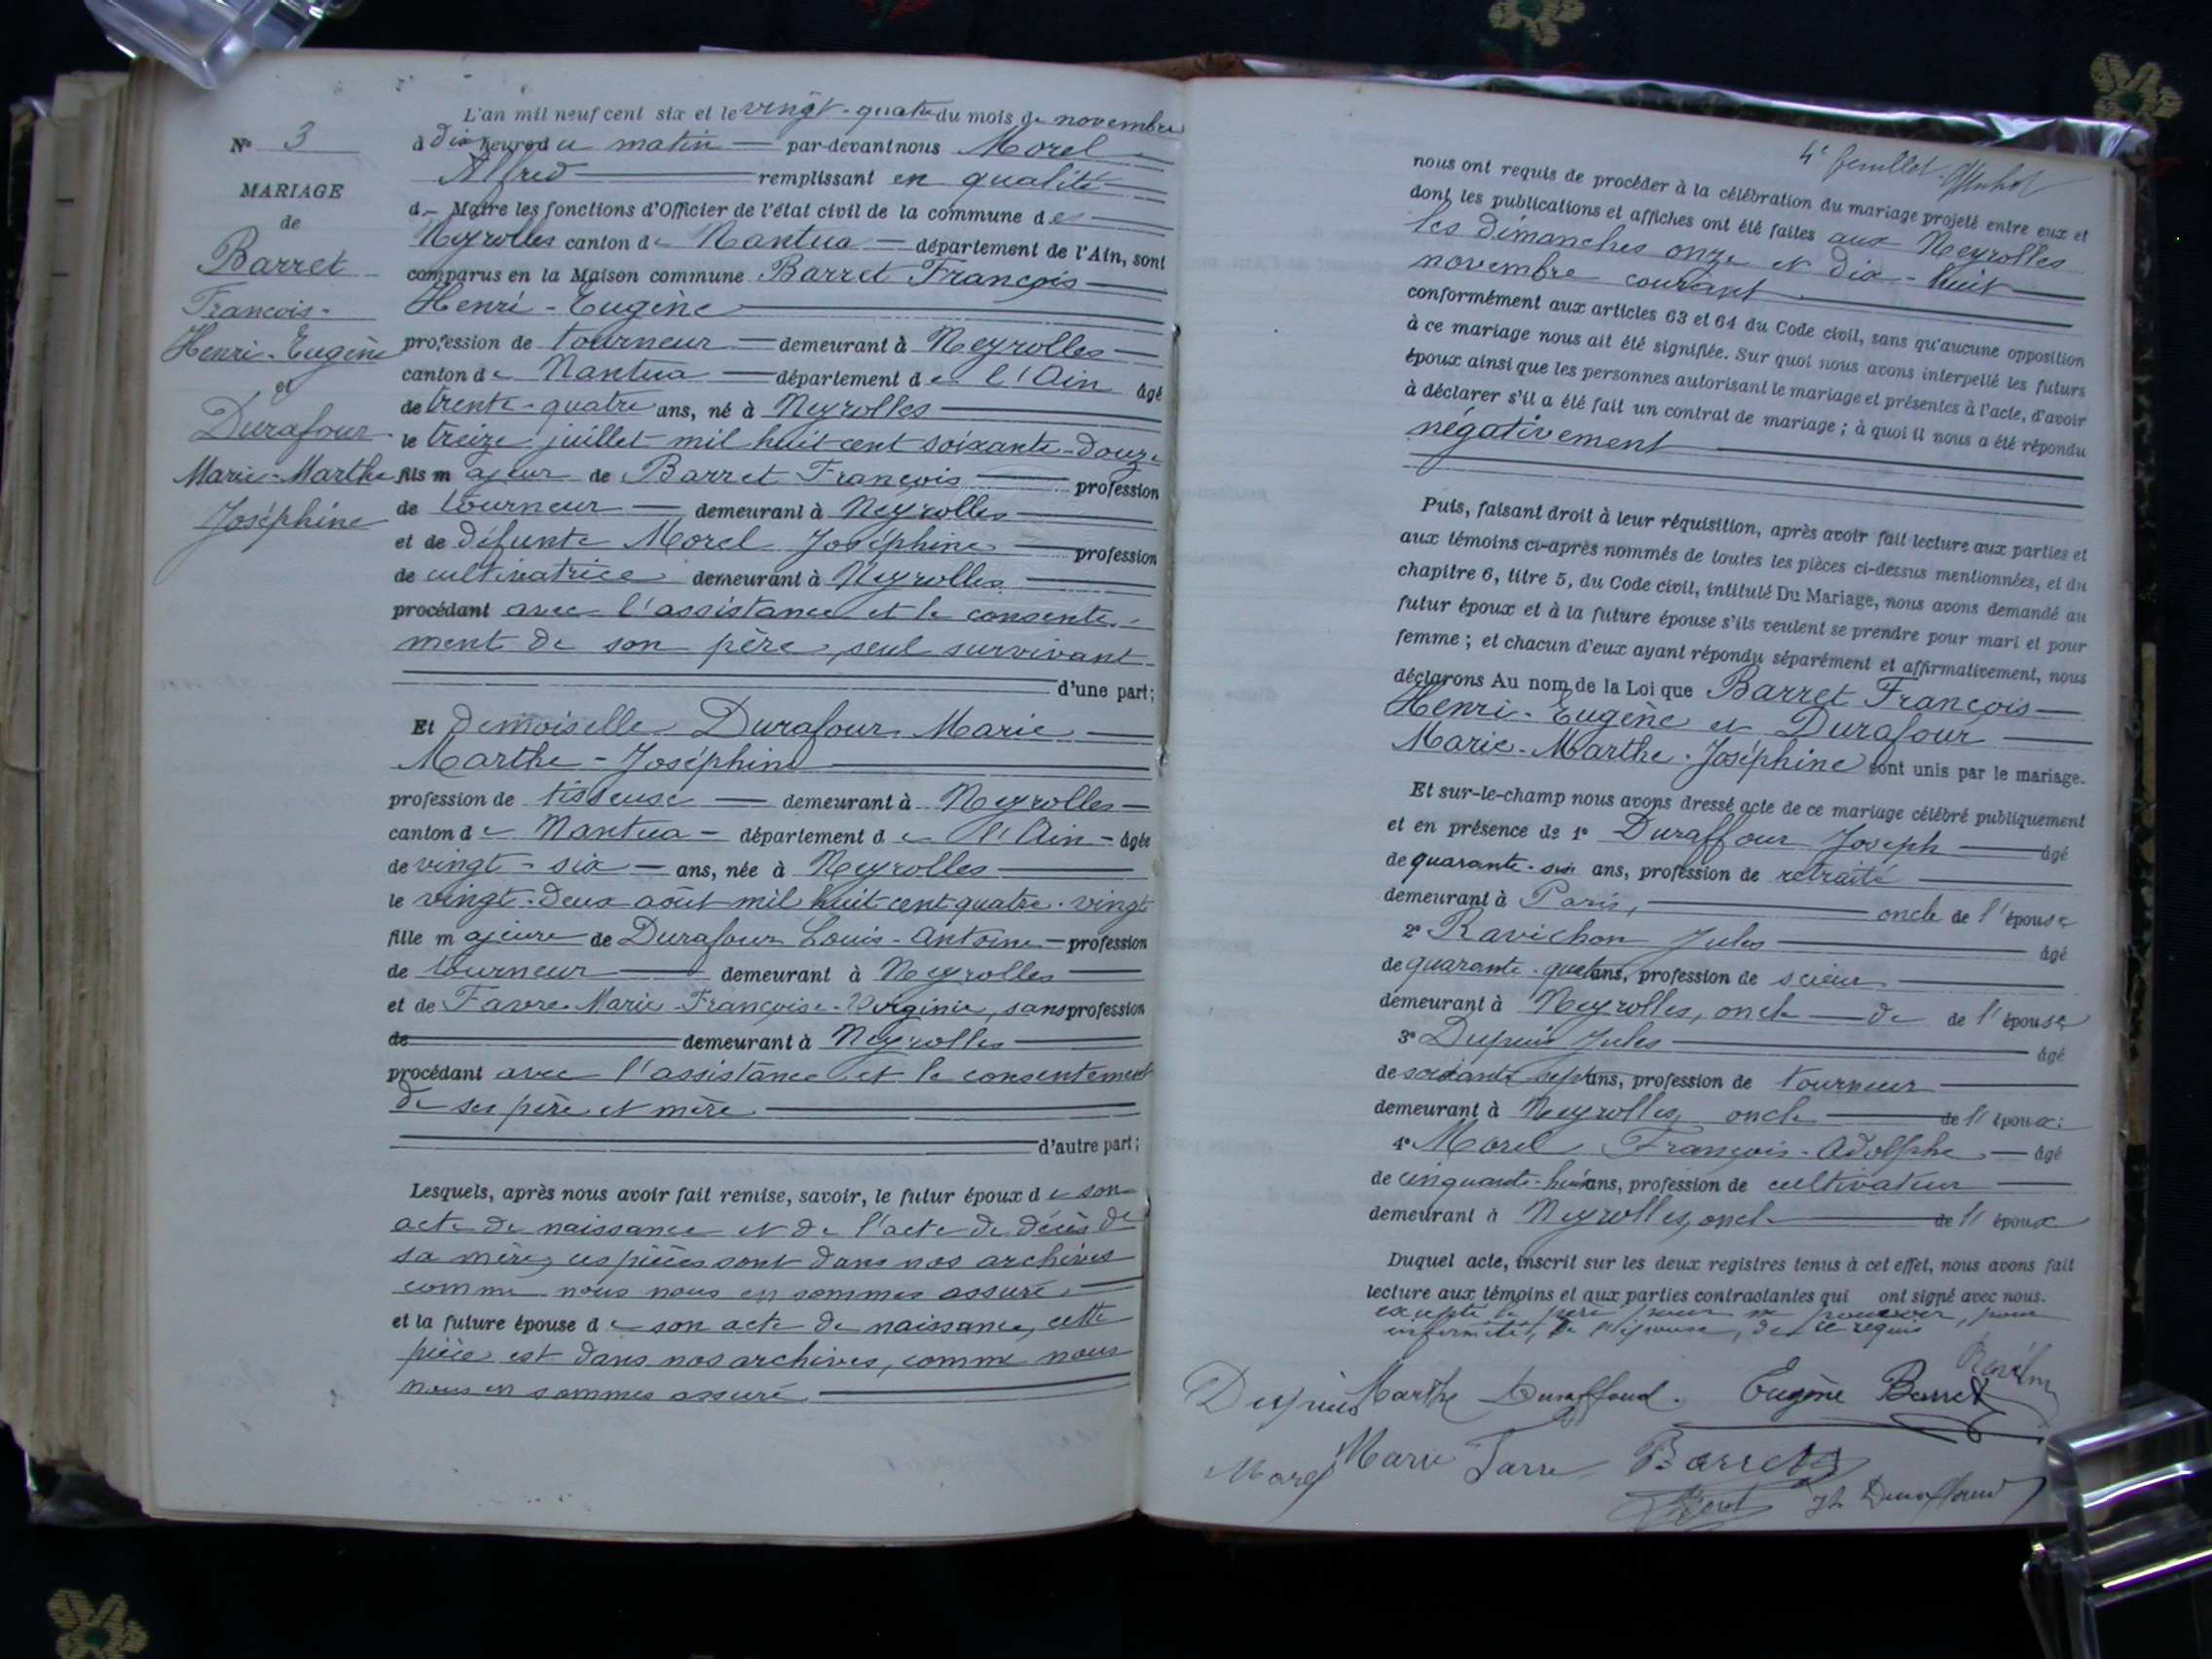 N° 3
MARIAGE
de
Barret
François-
Henri-Eugène
et
Durafour
Marie-Marthe
Joséphine
L'an mil neuf cent six et le vingt-quatre du mois de novembre
à dix heures du matin — par-devant nous Morel
Alfred — remplissant en qualité
d — Maire les fonctions d'Officier de l'état civil de la commune des
Neyrolles canton de Nantua — département de l'Ain, sont
comparus en la Maison commune Barret François —
Henri-Eugène
profession de tourneur — demeurant à Neyrolles —
canton de Nantua — département de l'Ain âgé
de trente-quatre ans, né à Neyrolles
le treize juillet mil huit cent soixante-douze
fils majeur de Barret François — profession
de tourneur — demeurant à Neyrolles
et de défunte Morel Joséphine — profession
de cultivatrice demeurant à Neyrolles
procédant avec l'assistance et le consente-
ment de son père, seul survivant
d'une part;
Et demoiselle Durafour Marie —
Marthe-Joséphine
profession de tisseuse — demeurant à Neyrolles —
canton de Nantua — département de l'Ain — âgée
de vingt-six — ans, née à Neyrolles
le vingt-deux août mil huit cent quatre-vingt
fille majeure de Durafour Louis-Antoine — profession
de tourneur — demeurant à Neyrolles
et de Favre Marie-Françoise-Virginie, sans profession
de — demeurant à Neyrolles
procédant avec l'assistance et le consentement
de ses père et mère
d'autre part;
Lesquels, après nous avoir fait remise, savoir, le futur époux de son
acte de naissance et de l'acte de décès de
sa mère, ces pièces sont dans nos archives
comme nous nous en sommes assuré, —
et la future épouse de son acte de naissance, cette
pièce est dans nos archives, comme nous
nous en sommes assuré
4e feuillet
nous ont requis de procéder à la célébration du mariage projeté entre eux et
dont les publications et affiches ont été faites aux Neyrolles
les dimanches onze et dix-huit
novembre courant
conformément aux articles 63 et 64 du Code civil, sans qu'aucune opposition
à ce mariage nous ait été signifiée. Sur quoi nous avons interpellé les futurs
époux ainsi que les personnes autorisant le mariage et présentes à l'acte, d'avoir
à déclarer s'il a été fait un contrat de mariage ; à quoi il nous a été répondu
négativement
Puis, faisant droit à leur réquisition, après avoir fait lecture aux parties et
aux témoins ci-après nommés de toutes les pièces ci-dessus mentionnées, et du
chapitre 6, titre 5, du Code civil, intitulé Du Mariage, nous avons demandé au
futur époux et à la future épouse s'ils veulent se prendre pour mari et pour
femme ; et chacun d'eux ayant répondu séparément et affirmativement, nous
déclarons Au nom de la Loi que Barret François —
Henri-Eugène et Durafour
Marie-Marthe-Joséphine sont unis par le mariage.
Et sur-le-champ nous avons dressé acte de ce mariage célébré publiquement
et en présence de 1° Duraffour Joseph — âgé
de quarante-six ans, profession de retraité
demeurant à Paris, — oncle de l'épouse
2° Ravichon Jules — âgé
de quarante-quatre ans, profession de scieur
demeurant à Neyrolles, oncle — de de l'épouse
3° Dupuis Jules — âgé
de soixante-sept ans, profession de tourneur
demeurant à Neyrolles, oncle — de l'époux
4° Morel François-Adolphe — âgé
de cinquante-huit ans, profession de cultivateur
demeurant à Neyrolles, oncle — de l'époux
Duquel acte, inscrit sur les deux registres tenus à cet effet, nous avons fait
lecture aux témoins et aux parties contractantes qui ont signé avec nous.
excepté le père pour ne pouvoir, pour
infirmité, de l'épouse, de ce requis
Dupuis Marthe Duraffourd. Eugène Barret
Morel Marie Favre Barret
Jh Duraffourd